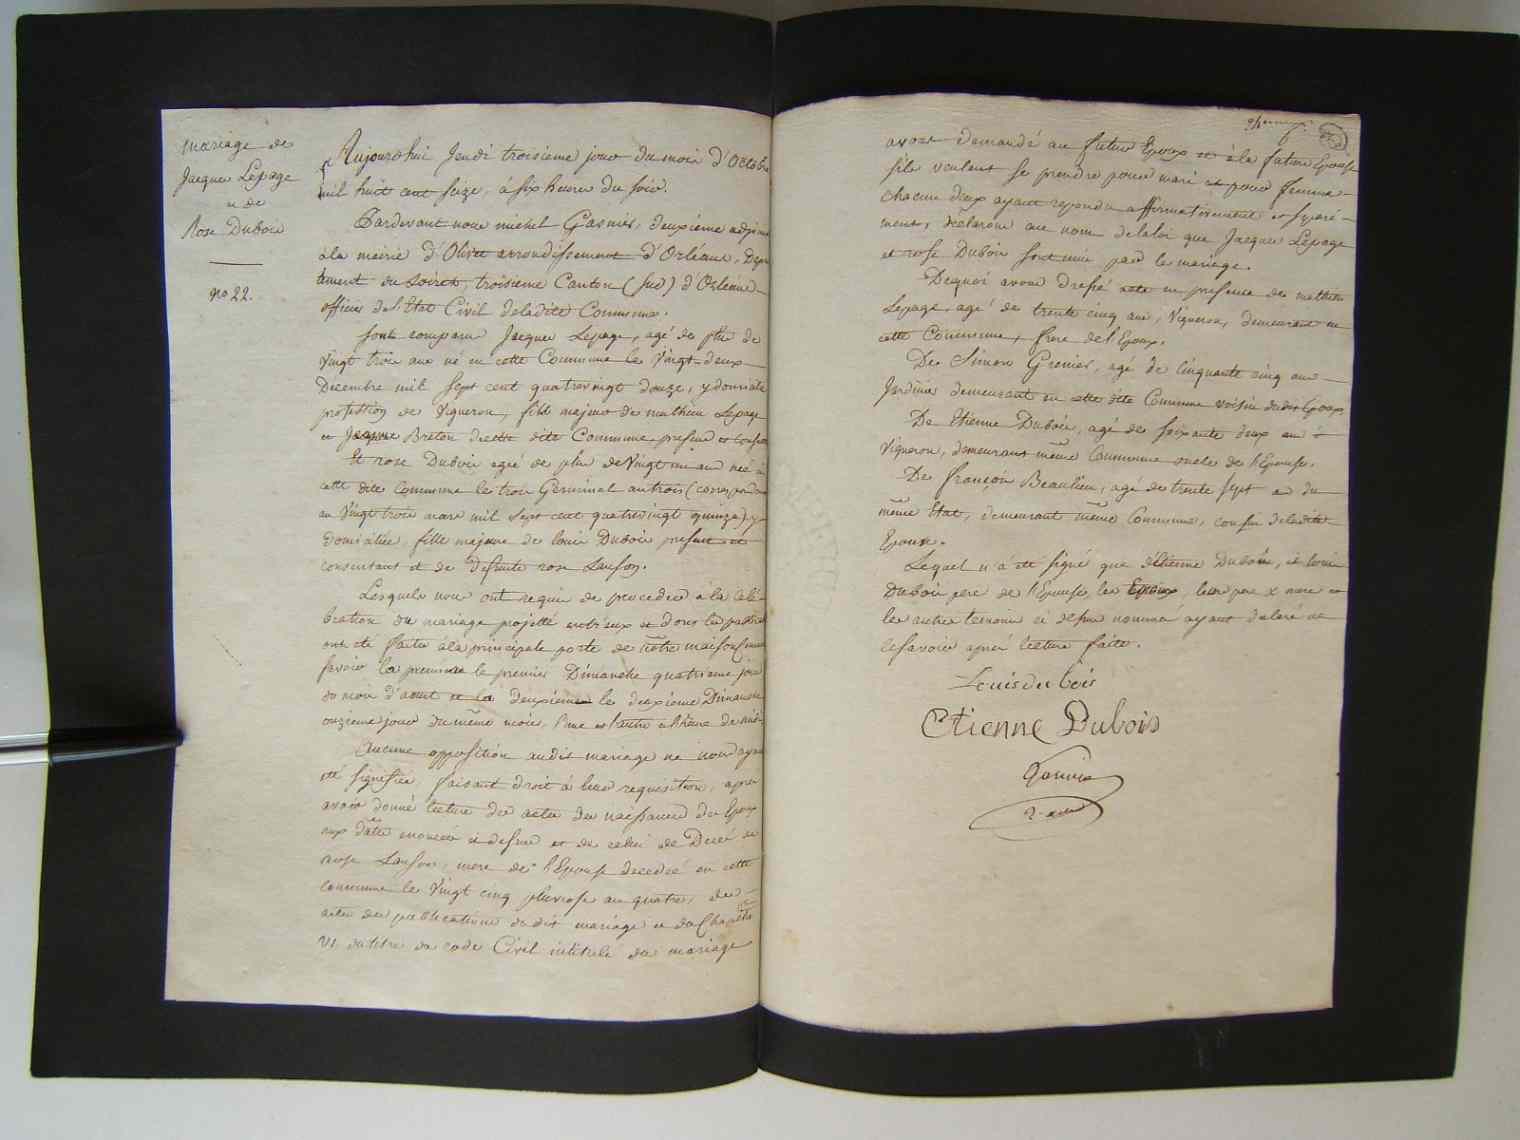 Mariage de
Jacque Lepage
et de
Rose Dubois
no 22.
Aujourdhui Jeudi troisieme jour du mois d'Octobre
mil huit cent seize, à six heures du soir.
Pardevant nous michel Gasnier, deuxième adjoint
à la mairie d'Olivet arrondissement d'Orléans, Depar
tement du Loiret, troisieme Canton (sud) d'Orléans
officier de l'Etat Civil deladite Commune.
Sont comparu Jacque Lepage, agé de plus de
Vingt trois ans né en cette Commune le Vingt-deux
Decembre mil sept cent quatrevingt douze, y domicilié
profession de Vigneron, fils majeur de mathieu Lepage
et Jeanne Breton decette dite Commune present et consent
Et rose Dubois agée de plus de Vingt un ans née en
cette dite Commune le trois Germinal an trois (correspondant
au Vingt trois mars mil sept cent quatrevingt quinze) y
domiciliée, fille majeure de louis Dubois present et
consentant et de defunte rose Lanson.
Lesquels nous ont requis de proceder à la Célé-
bration du mariage projetté entr'eux et dont les publica
ont été faites à la principale porte de notre maison Commune
savoir la premiere le premier Dimanche quatrieme jour
du mois d'aout et la deuxieme le deuxieme Dimanche
onzieme jour du même mois, l'une et l'autre à l'heure de midi
Aucune opposition audit mariage ne nous ayant
été signifiée, faisant droit à leur requisition, apres
avoir donné lecture des actes de naissances des Epoux
aux dates enoncés ci dessus et de celui de Décés de
rose Lanson, mere de l'Epouse decedée en cette
commune le Vingt cinq pluviose an quatre, des
actes de publications dudit mariage et du Chapitre
VI du titre du code Civil intitulé du mariage
avons demandé au futur Epoux et à la future Epouse
s'ils veulent se prendre pour mari et pour femme
chacun d'eux ayant repondu affirmativement et séparé-
ment, declarons au nom delaloi que Jacque Lepage
et rose Dubois sont unis par le mariage.
Dequoi avons dressé acte en présence de mathieu
Lepage, agé de trente cinq ans, Vigneron, demeurant en
cette Commune, frere de l'Epoux.
De Simon Grenier, agé de Cinquante cinq ans
Jardinier demeurant en cette dite Commune voisin dudit Epoux
De Etienne Dubois, agé de soixante deux ans
Vigneron, demeurant même Commune oncle de l'Epouse.
De françois Beaulieu, agé de trente sept ans du
même Etat, demeurant même Commune, cousin deladite
Epouse.
Lequel n'a été signé que d'Etienne Dubois, et louis
Dubois pere de l'Epouse, les Epoux, leur pere & mere et
les autres temoins ci dessus nommés ayant declaré ne
le savoir aprés lecture faite.
Louis du bois
Etienne Dubois
Gasnier